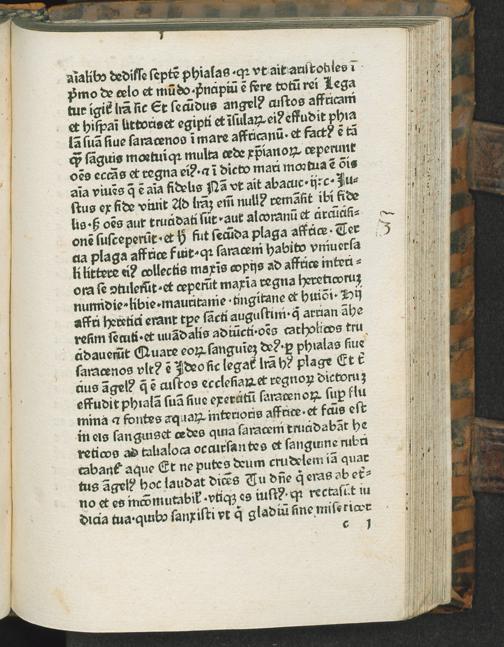 aīalibꝰ dedisse septē phialas · qꝛ vt ait aristotiles ī
p̄mo de celo et mūdo · p̄ncipiū ē fere totū rei Lega
tur igit͛ lr̄a sic Et secūdus angelꝰ custos affricani
et hispaī littoris et egipti et īsularꝝ eiꝰ effudit phia
lā suā siue saracenos ī mare affricanū · et factꝰ ē tā
qͣꝫ sāguis mortui qꝛ multa cede xp̄ianoꝝ ceperunt
oēs eccīas et regna eiꝰ · ⁊ ī dicto mari mortua ē ōis
aīa viuēs q̄ ē aīa fidelis Nā vt ait abacuc · ij · c · Ju-
stus ex fide viuit Ad lr̄aꝫ em̄ nullꝰ remāsit ibi fide
lis · sꝫ oēs aut trucidati sūt · aut alcoranū et circūcisi-
onē susceperūt · et hͥ fuit secūda plaga affrice · Ter
cia plaga affrice fuit · qꝛ saraceni habito vniuersa
li littere eiꝰ collectis maxīs copijs ad affrice interi-
ora se ꝯtulerūt · et ceperūt maxīa regna hereticoruꝫ
numidie · libie · mauritanie · tingitane et
affri heretici erant tꝑe sācti augustini · q̄ arrian
resim secuti · et wādalis adiūcti · oēs catholicos tru
cidauerūt Quare eoꝝ sanguīeꝫ deꝰ · ꝑ phialas siue
saracenos vltꝰ ē Jdeo sic legat͛ lr̄a hꝰ plage Et t̄
cius āgelꝰ q̄ ē custos ecclesiaꝝ et regnoꝝ dictoruꝫ
effudit phialā suā siue exercitū saracenoꝝ suꝑ flu
mina ⁊ fontes aquaꝝ interioris affrice · et fcūs est
in eis sanguis et cedes quia saraceni trucidabāt he
reticos ad talia loca occursantes et sanguine rubri
cabant͛ aque Et ne putes deum crudelem iā quar
tus āgelꝰ hoc laudat dicēs Tu dn̄e q̄ eras ab et͛-
no et es incōmutabil͛ · vtiqꝫ es iustꝰ · qꝛ recta sūt iu
dicia tua · quibꝰ sanxisti vt q̄ gladiū sine misericor
c 1